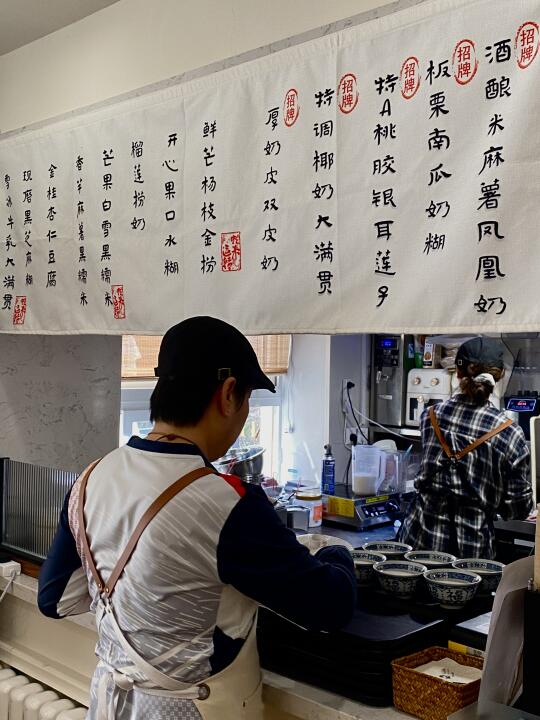 招牌
酒酿米麻薯凤凰奶
招牌
板栗南瓜奶糊
招牌
特A桃胶银耳莲子
招牌
特调椰奶大满贯
招牌
厚奶皮双皮奶
鲜芒杨枝金捞
开心果口水糊
榴莲捞奶
芒果白雪黑糯米
香芋麻薯黑糯米
金桂杏仁豆腐
现磨黑芝麻糊
牛乳大满贯
福